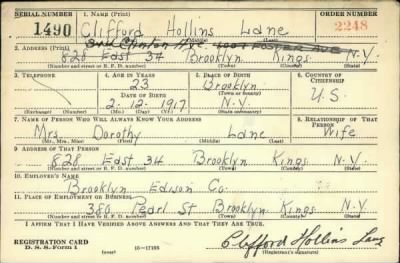 SERIAL NUMBER 1. NAME (Print) ORDER NUMBER
1490 Clifford Hollins Lane 2248
(First) (Middle) (Last)
2. ADDRESS (Print)
828 East 34 Brooklyn Kings N.Y.
(Number and street or R. F. D. number) (Town) (County) (State)
3. TELEPHONE 4. AGE IN YEARS 5. PLACE OF BIRTH 6. COUNTRY OF CITIZENSHIP
23 Brooklyn
DATE OF BIRTH (Town or county)
2-12-1917 N.Y. U.S.
(Exchange) (Number) (Mo.) (Day) (Yr.) (State or country)
7. NAME OF PERSON WHO WILL ALWAYS KNOW YOUR ADDRESS 8. RELATIONSHIP OF THAT PERSON
Mrs. Dorothy Lane Wife
(Mr., Mrs., Miss) (First) (Middle) (Last)
9. ADDRESS OF THAT PERSON
828 East 34 Brooklyn Kings N.Y.
(Number and street or R. F. D. number) (Town) (County) (State)
10. EMPLOYER'S NAME
Brooklyn Edison Co.
11. PLACE OF EMPLOYMENT OR BUSINESS
380 Pearl St Brooklyn Kings N.Y.
(Number and street or R. F. D. number) (Town) (County) (State)
I AFFIRM THAT I HAVE VERIFIED ABOVE ANSWERS AND THAT THEY ARE TRUE.
REGISTRATION CARD
D. S. S. Form 1 (over) Clifford Hollins Lane
(Registrant's signature)